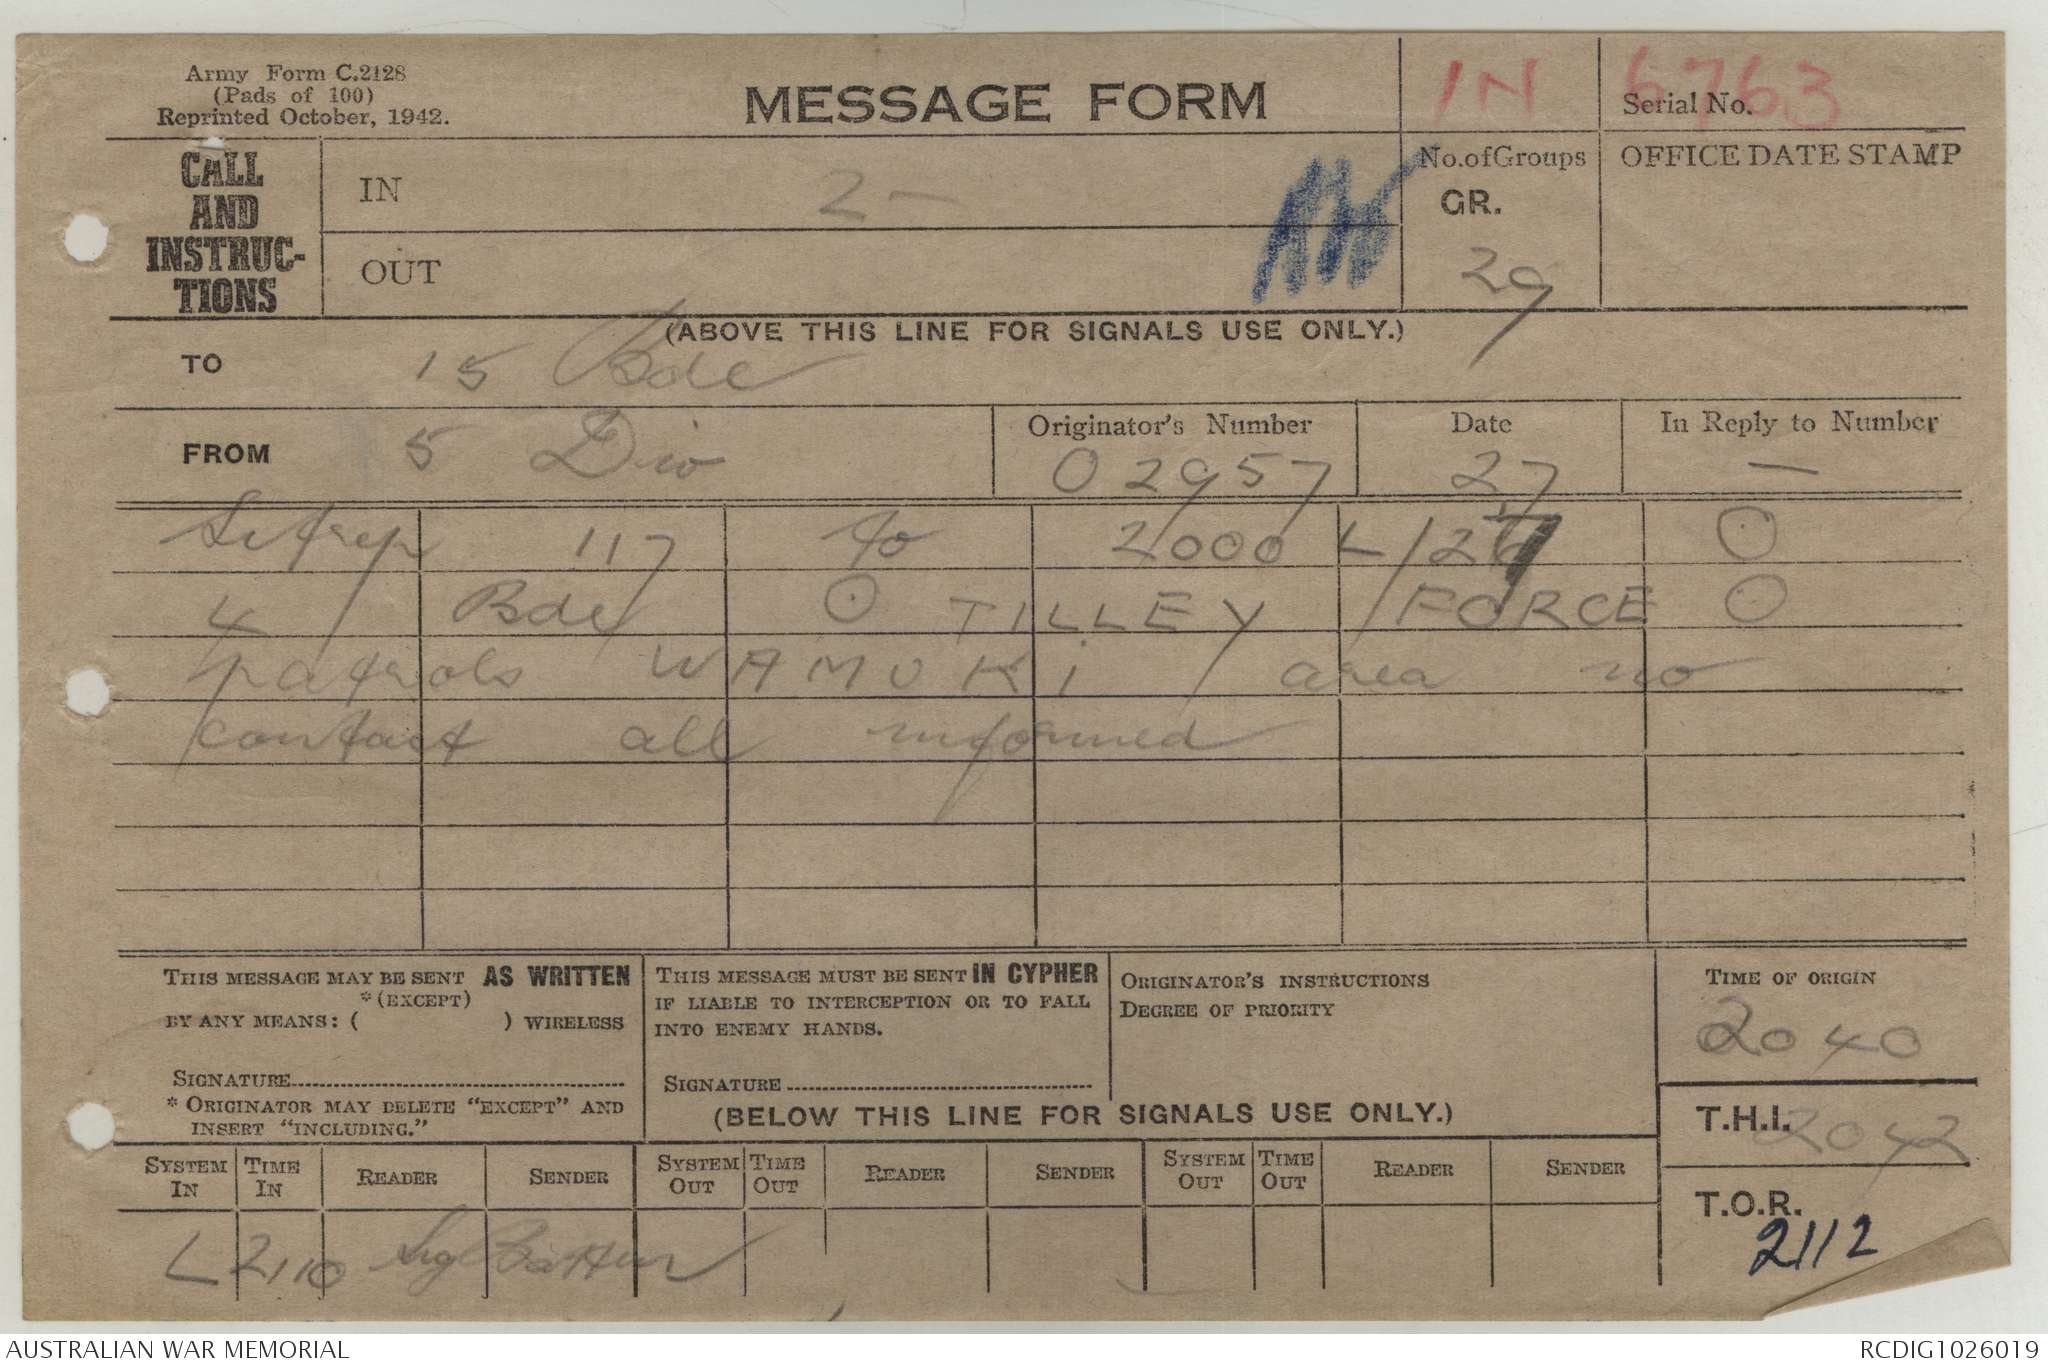 Army Form C.2128
(Pads of 100)
Reprinted October, 1942.
MESSAGE FORM
IN
Serial No. 6763
CALL AND INSTRUC-TIONS
IN 2 —
OUT
No. of Groups
GR.
29
OFFICE DATE STAMP
(ABOVE THIS LINE FOR SIGNALS USE ONLY.)
TO 15 Bde
FROM 5 Div
Originator's Number
O2957
Date
27
In Reply to Number
—
Sitrep 117 to 2000 L/27 O
4 Bde O TILLEY FORCE O
patrols WAMUKI area no
contact all informed
THIS MESSAGE MAY BE SENT AS WRITTEN
*(EXCEPT)
BY ANY MEANS: ( ) WIRELESS
SIGNATURE
* ORIGINATOR MAY DELETE "EXCEPT" AND
INSERT "INCLUDING."
THIS MESSAGE MUST BE SENT IN CYPHER
IF LIABLE TO INTERCEPTION OR TO FALL
INTO ENEMY HANDS.
SIGNATURE
ORIGINATOR'S INSTRUCTIONS
DEGREE OF PRIORITY
TIME OF ORIGIN
2040
(BELOW THIS LINE FOR SIGNALS USE ONLY.)
T.H.I. 2042
T.O.R.
2112
SYSTEM IN TIME IN READER SENDER SYSTEM OUT TIME OUT READER SENDER SYSTEM OUT TIME OUT READER SENDER
L 2110 Sig
AUSTRALIAN WAR MEMORIAL
RCDIG1026019